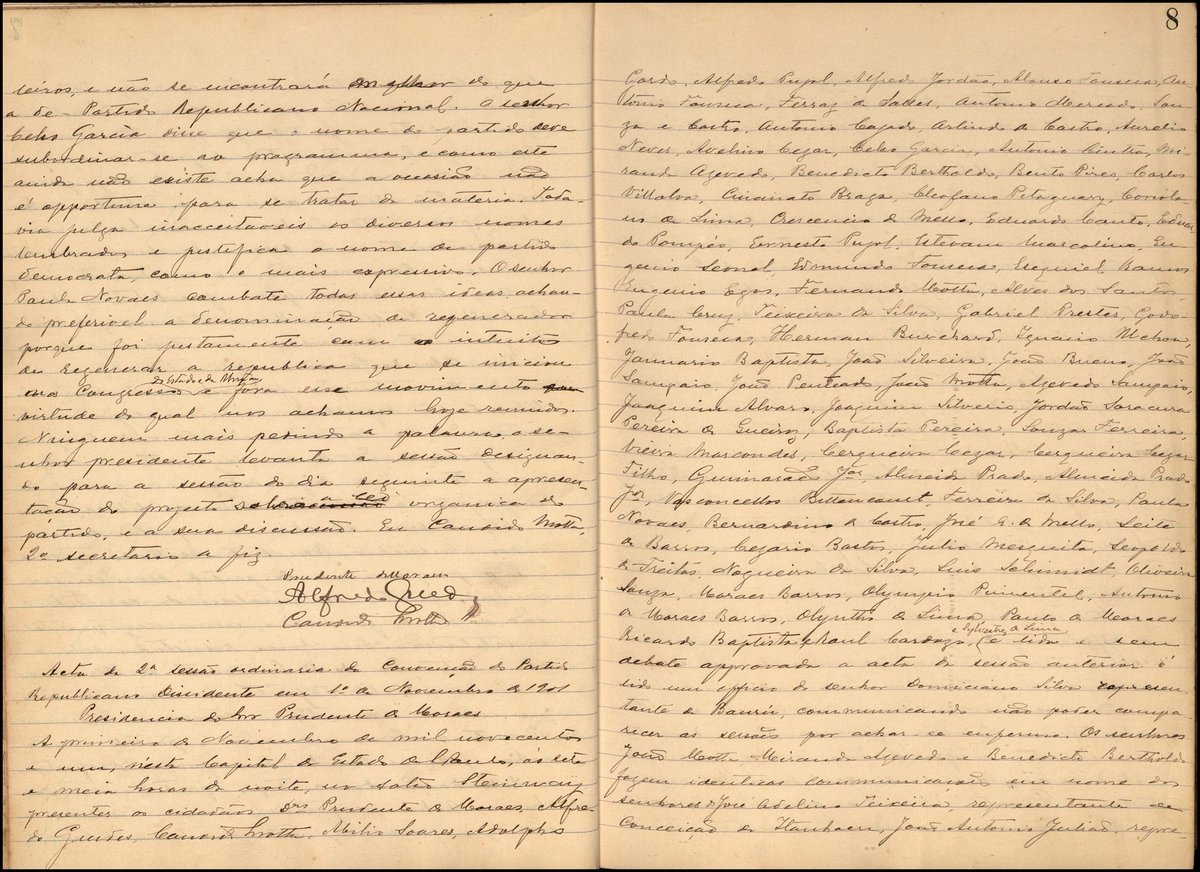 leiros, e não se encontrará melhor do que
a de - Partido Republicano Nacional. O senhor
Celso Garcia disse que o nome do partido deve
subordinar-se ao programma, e como este
ainda não existe acha que a occasião não
é opportuna para se tratar da materia. Toda-
via julga inacceitaveis os diversos nomes
lembrados e justifica o nome de partido
democrata, como o mais expressivo. O senhor
Paula Novaes combate todas essas ideas, achan-
do preferivel a denominação de regenerador
porque foi justamente com intuitos
de regenerar a republica que se iniciou
no Congresso do Estado e da União e fóra esse movimento
virtude do qual nos achamos hoje reunidos.
Ninguem mais pedindo a palavra, o se-
nhor presidente levanta a sessão designan-
do para a sessão do dia seguinte a apresen-
tação do projecto a lei organica do
partido, e a sua discussão. Eu Candido Motta,
2º secretario a fiz.
Prudente de Moraes
Alfredo Guedes
Candido Motta
Acta da 2ª sessão ordinaria da Convenção do Partido
Republicano Dissidente em 1º de Novembro de 1901
Presidencia do Snr Prudente de Moraes
A primeiro de Novembro de mil novecentos
e um, nesta Capital do Estado de S. Paulo, ás sete
e meia horas da noite, no salão Steinway
presentes os cidadãos Drs Prudente de Moraes, Alfre-
do Guedes, Candido Motta, Abilio Soares, Adolpho
8
Gordo, Alfredo Pujol, Alfredo Jordão, Alonso Fonseca, An-
tonio Fonseca, Ferraz de Salles, Antonio Mercado, Sou-
za e Castro, Antonio Cajado, Arlindo de Castro, Aurelio
Neves, Avelino Cezar, Celso Garcia, Antonio Cintra, Mi-
randa Azevedo, Benedicto Bertholdo, Bento Pires, Carlos
Villalva, Cincinato Braga, Cleofano Pitaguary, Coriola-
no de Lima, Crescencio de Mello, Eduardo Canto, Eduar-
do Pompéo, Ernesto Pujol, Estevam Marcolino, Eu-
genio Leonel, Edmundo Fonseca, Esequiel Ramos
Eugenio Egas, Fernando Motta, Alves dos Santos,
Paula Cruz, Teixeira da Silva, Gabriel Prestes, Godo-
fredo Fonseca, Herman Burchard, Ignacio Uchoa,
Januario Baptista, João Silveira, João Bueno, João
Sampaio, João Penteado, João Motta, Azevedo Sampaio,
Joaquim Alvaro, Joaquim Silverio, Jordão Saracura
Pereira de Queiroz, Baptista Pereira, Souza Ferreira,
Vieira Marcondes, Cerqueira Cezar, Cerqueira Cezar
Filho, Guimarães Jor, Almeida Prado, Almeida Prado
Jor, Vasconcellos Bittencourt, Ferreira da Silva, Paula
Novaes, Bernardino de Castro, José G. de Mello, Leite
de Barros, Cezario Bastos, Julio Mesquita, Leopoldo
de Freitas, Nogueira da Silva, Luis Schmidt, Oliveira
Souza, Moraes Barros, Olympio Pimentel, Antonio
de Moraes Barros, Olyntho de Lima, Paulo de Moraes
Ricardo Baptista, Raul Cardozo, e Sylvestre de Lima é lida e sem
debate approvada a acta da sessão anterior. é
lido um officio do senhor Domiciano Silva represen-
tante de Baurú, communicando não poder compa-
recer as sessões por achar-se enfermo. Os senhores
João Motta, Miranda Azevedo e Benedicto Bertholdo
fazem identicas communicação em nome dos
senhores José Adelino Teixeira, representante de
Conceição de Itanhaem, João Antonio Julião, repre-